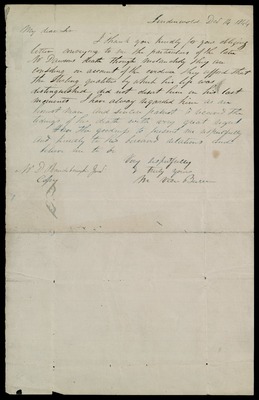 Lindenwald Dec 14 1864
My dear Sir
I thank you kindly for your obliging
letter, conveying to me the particulars of the late
Mr death though melancholy they are
consoling on account of the evidence they afford that
the sterling qualities by which his life was
distinguished, did not desert him in his last
moments. I have always regarded him as an
honest man and sincere patriot & received the
tidings of his death with very great regret
Have the goodness to me respectfully
and kindly to his bereaved relatives and
believe me to be
Very respectfully
& truly yours
M. Van Buren
W. D.
Copy